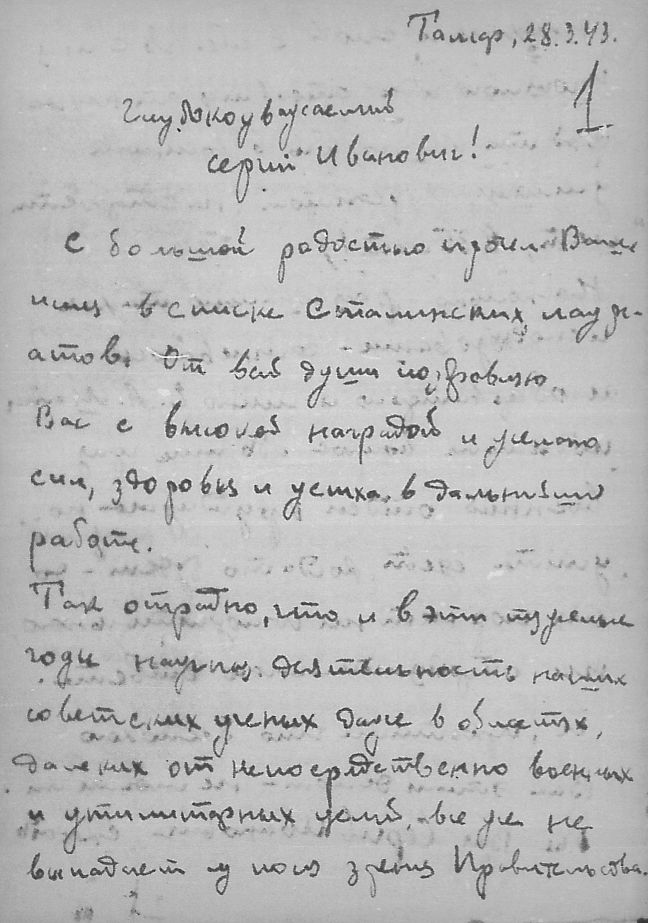 28.3.43.
1
Глубокоуважаемый
Сергий Иванович!
С большой радостью прочел Ваше
имя в списке Сталинских лауре-
атов. От всей души поздравляю
Вас с высокой наградой и желаю
сил, здоровья и успеха в дальнейшей
работе.
Так отрадно, что и в эти тяжелые
годы научная деятельность наших
советских ученых даже в областях,
далеких от непосредственно военных
и утилитарных целей, все же не
выпадает из поля зрения Правительства.